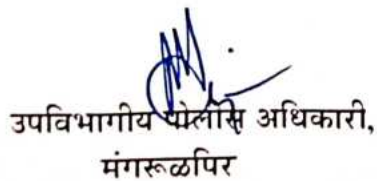 उपविभागीय पोलीस अधिकारी,
मंगरूळपिर